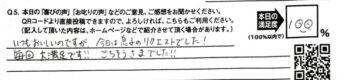 Q5. 本日の「喜びの声」「お叱りの声」などのご意見、ご感想をお聞かせください。
QRコードより直接投稿できますので、よろしければ、こちらもご利用ください。
(記入して頂いた内容は、ホームページなどで紹介させて頂く場合があります。)
本日の
満足度
(100%以内で)
100%
いつもおいしいのですが、今日は息子のリクエストでした!
毎回大満足です!! ごちそうさまでした!!